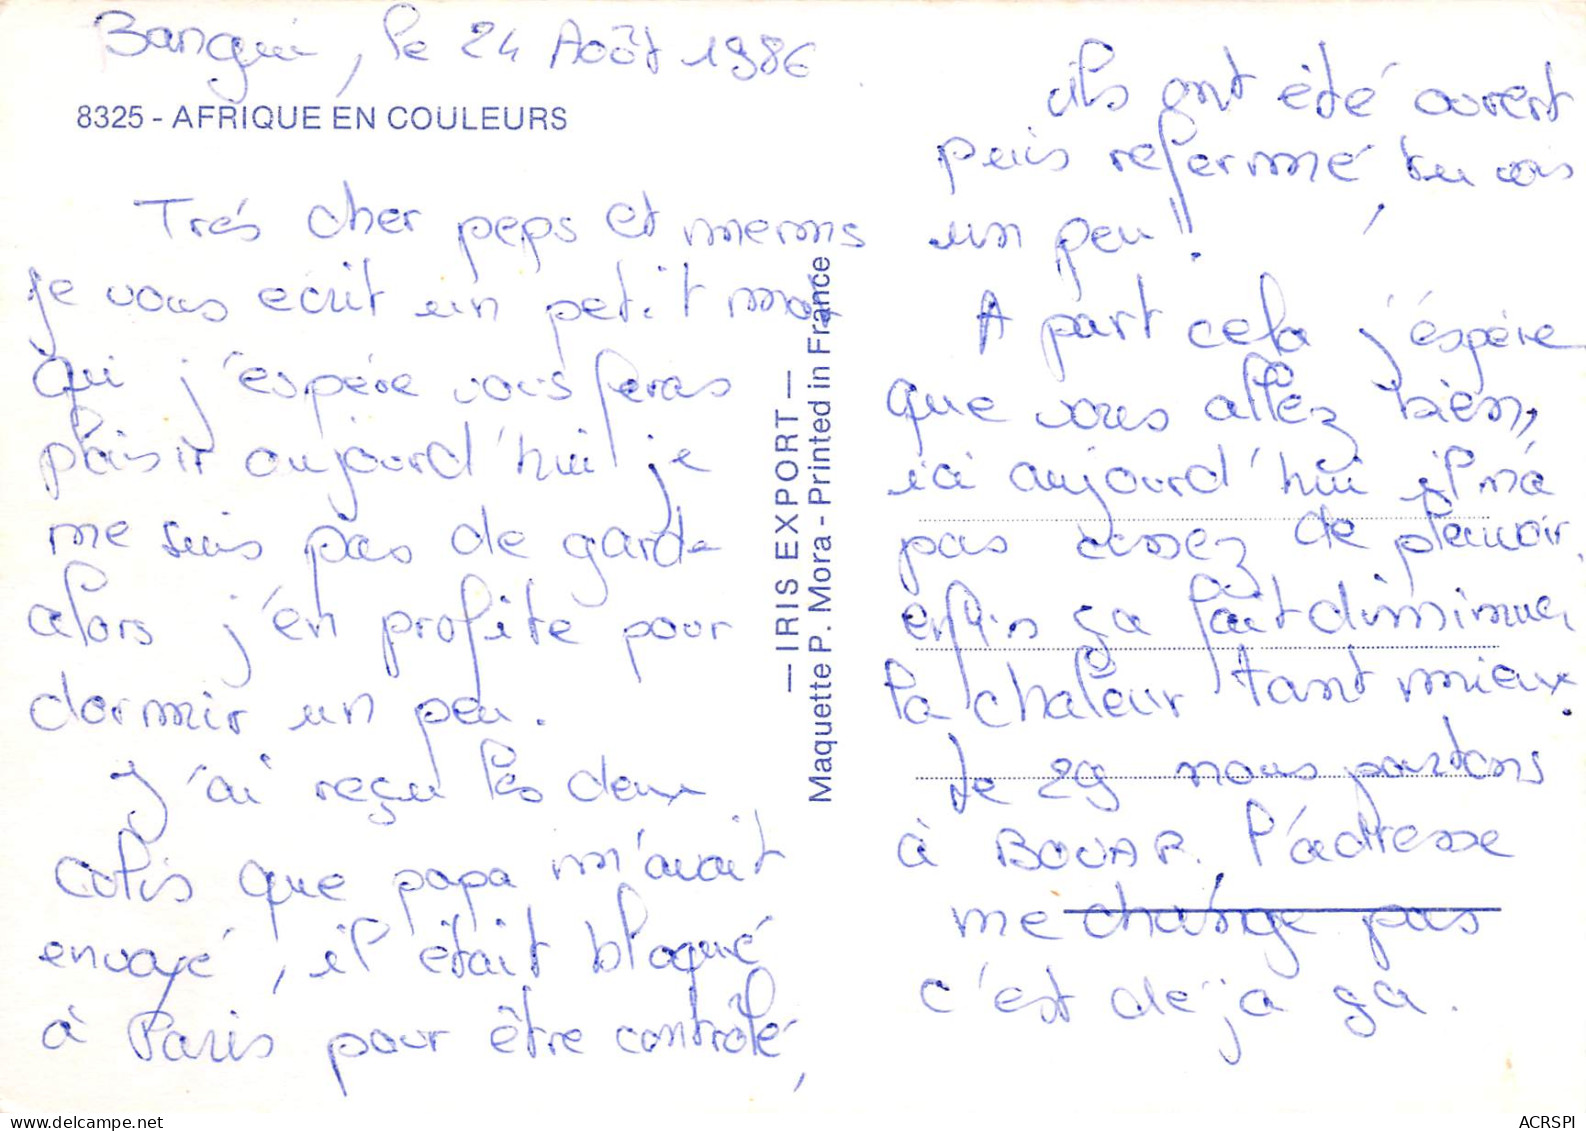 Bangui, le 24 Août 1986
8325 - AFRIQUE EN COULEURS
Trés cher peps et mems
je vous ecrit un petit mot
qui j'éspére vous feras
plaisir aujourd'hui je
me suis pas de garde
alors j'én profite pour
dormir un peu.
J'ai reçu les deux
colis que papa m'avait
envoyé, il était bloqué
à Paris pour être contrôlé,
— IRIS EXPORT —
Maquette P. Mora - Printed in France
ils ont été ouvert
puis refermé, tu vois
un peu!!
A part cela j'éspére
que vous allez bien,
ici aujourd'hui il n'a
pas cessez de pleuvoir,
enfin ça fait diminuer
la chaleur tant mieux.
Le 29 nous partons
à BOUAR, l'adresse
me change pas
c'est dejà ça.
ACRSPI